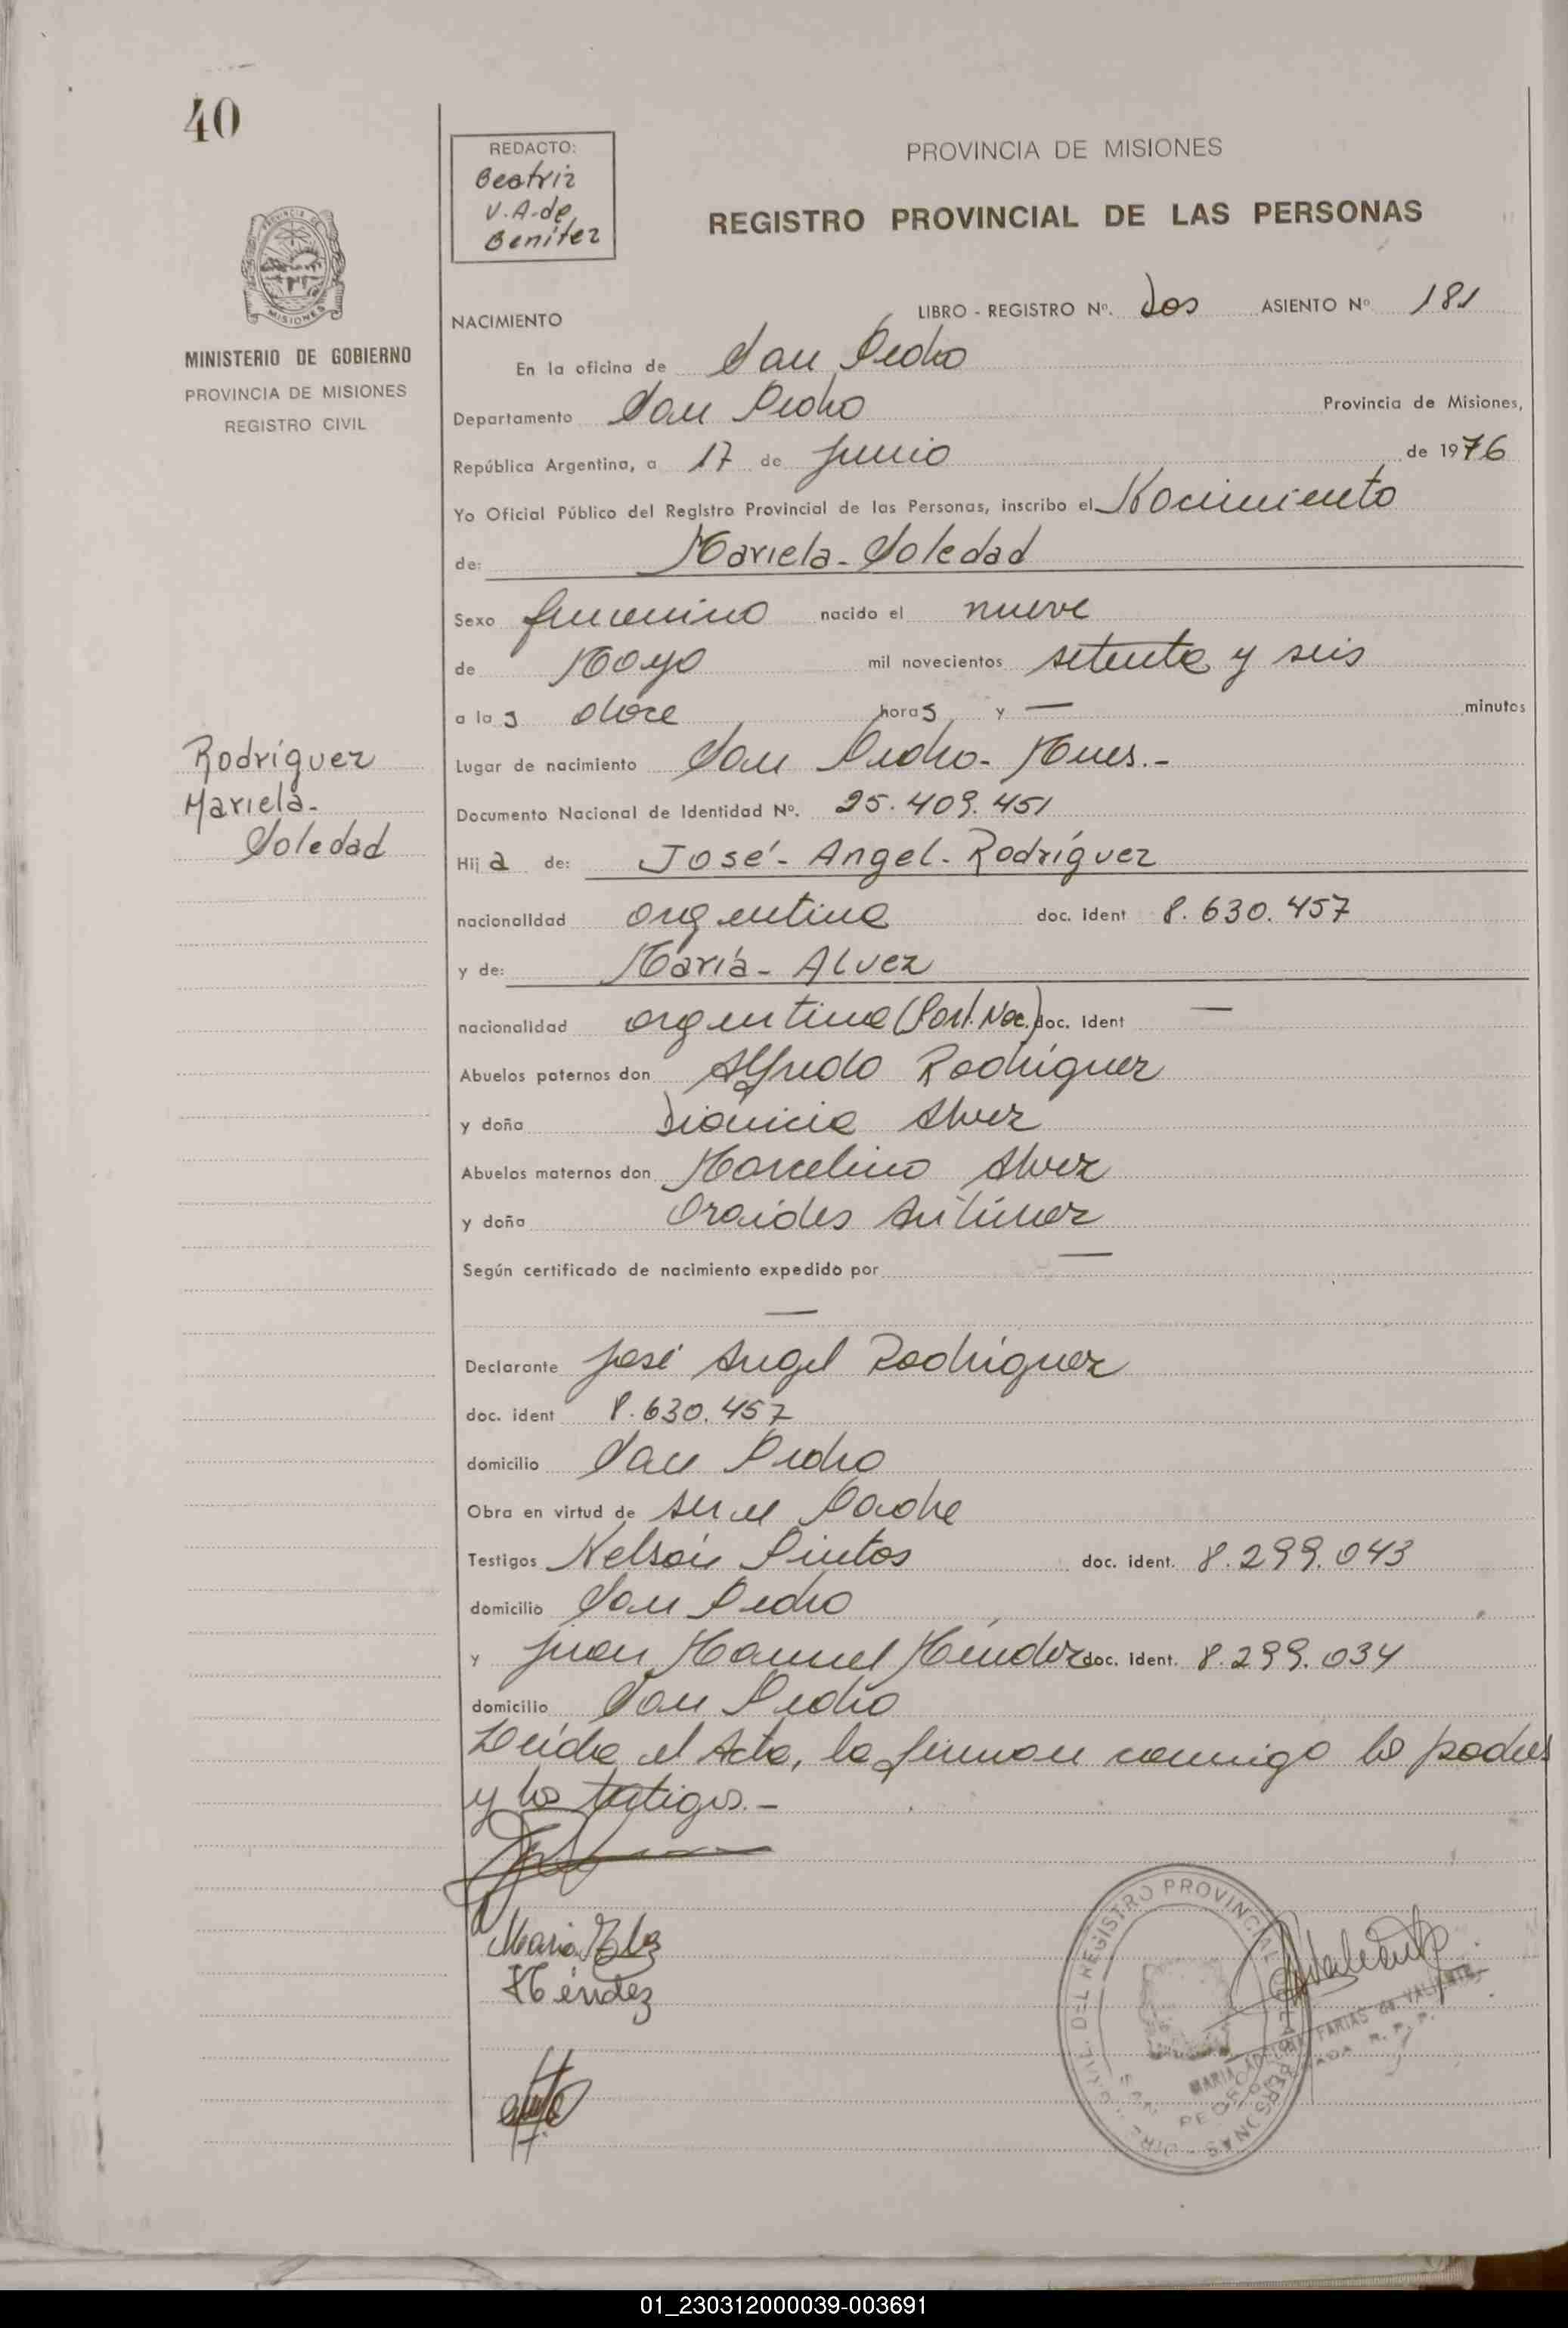 40
REDACTO:
Beatriz
V.A. de
Benítez
PROVINCIA DE MISIONES
REGISTRO PROVINCIAL DE LAS PERSONAS
MISIONES
MINISTERIO DE GOBIERNO
PROVINCIA DE MISIONES
REGISTRO CIVIL
NACIMIENTO
LIBRO - REGISTRO Nº. Dos ASIENTO Nº 181
En la oficina de San Pedro
Departamento San Pedro Provincia de Misiones,
República Argentina, a 17 de junio de 1976
Yo Oficial Público del Registro Provincial de las Personas, inscribo el Nacimiento
de: Mariela - Soledad
Sexo femenino nacido el nueve
de Mayo mil novecientos setenta y seis
a las doce horas y — minutos
Rodríguez
Mariela -
Soledad
Lugar de nacimiento San Pedro - Mnes. -
Documento Nacional de Identidad Nº. 25.409.451
Hija de: José - Angel - Rodríguez
nacionalidad argentina doc. ident 8.630.457
y de: María - Alvez
nacionalidad argentina (Part. Nac.) doc. ident —
Abuelos paternos don Alfredo Rodríguez
y doña Dionicia Alvez
Abuelos maternos don Marcelino Alvez
y doña Oraides Antúnez
Según certificado de nacimiento expedido por —
—
Declarante José Angel Rodríguez
doc. ident 8.630.457
domicilio San Pedro
Obra en virtud de ser el Padre
Testigos Nelson Pintos doc. ident. 8.299.043
domicilio San Pedro
y Juan Manuel Méndez doc. ident. 8.299.034
domicilio San Pedro
Leída el Acta, la firman conmigo los padres
y los testigos. -
Maria
Méndez
DEL REGISTRO PROVINCIAL DE LAS PERSONAS
SAN PEDRO
MARIA ADELINA FARIAS de VALIENTE
R. P. P.
01_230312000039-003691